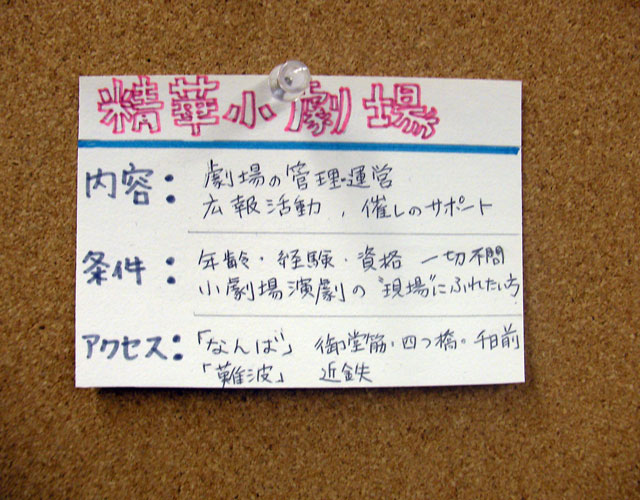 精華小劇場
内容: 劇場の管理・運営
広報活動、催しのサポート
条件: 年齢・経験・資格 一切不問
小劇場演劇の"現場"にふれたい方
アクセス: 「なんば」 御堂筋・四つ橋・千日前
「難波」 近鉄